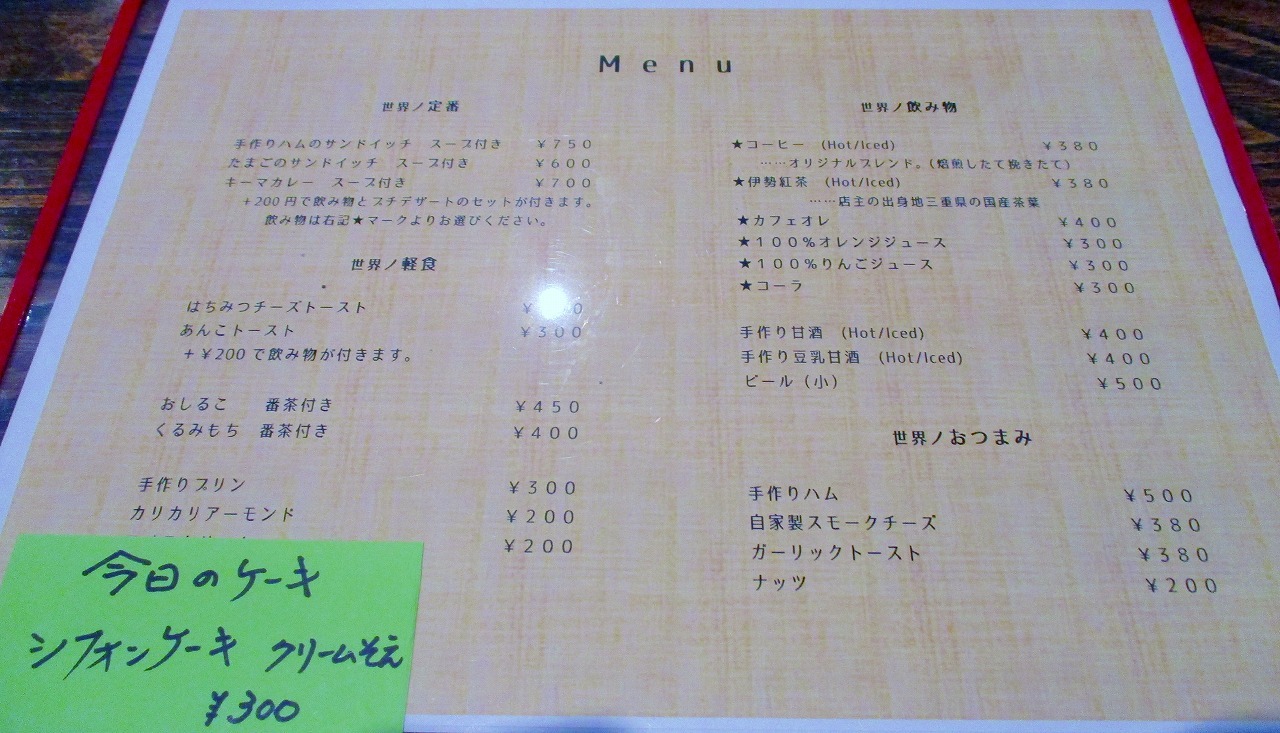 Menu
世界ノ定番
手作りハムのサンドイッチ　スープ付き　￥750
たまごのサンドイッチ　スープ付き　￥600
キーマカレー　スープ付き　￥700
+200円で飲み物とプチデザートのセットが付きます。
飲み物は右記★マークよりお選びください。
世界ノ軽食
はちみつチーズトースト
あんこトースト　￥300
+￥200で飲み物が付きます。
おしるこ　番茶付き　￥450
くるみもち　番茶付き　￥400
手作りプリン　￥300
カリカリアーモンド　￥200
￥200
世界ノ飲み物
★コーヒー　(Hot/Iced)　￥380
……オリジナルブレンド。(焙煎したて挽きたて)
★伊勢紅茶　(Hot/Iced)　￥380
……店主の出身地三重県の国産茶葉
★カフェオレ　￥400
★100%オレンジジュース　￥300
★100%りんごジュース　￥300
★コーラ　￥300
手作り甘酒　(Hot/Iced)　￥400
手作り豆乳甘酒　(Hot/Iced)　￥400
ビール（小）　￥500
世界ノおつまみ
手作りハム　￥500
自家製スモークチーズ　￥380
ガーリックトースト　￥380
ナッツ　￥200
今日のケーキ
シフォンケーキ　クリームそえ
￥300